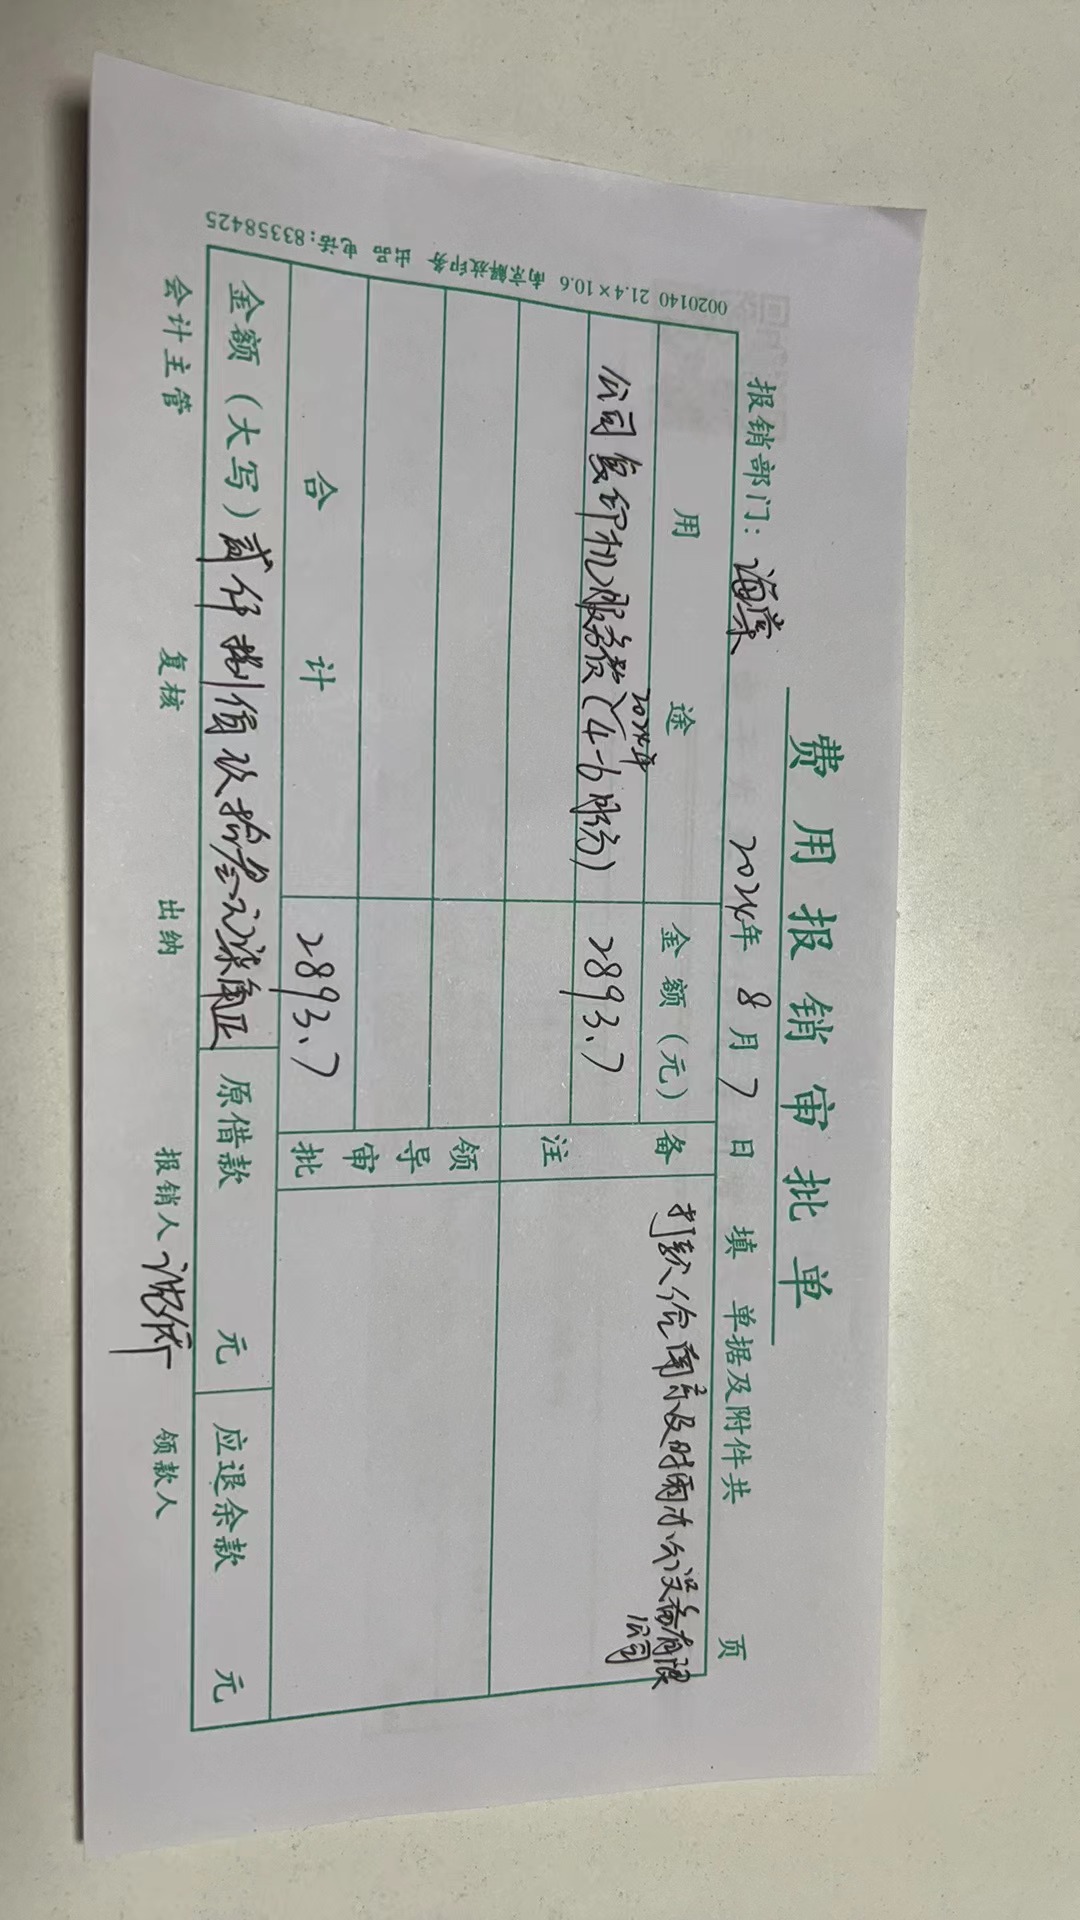 费用报销审批单
报销部门：海棠 2024年 8月 7日 填 单据及附件共 页
用途 金额（元） 备注 打款给南京及时雨办公设备有限公司
2024年
公司复印机服务费（4-6月份） 2893.7
领导审批
合计 2893.7
金额（大写）贰仟捌佰玖拾叁元柒角正 原借款 元 应退余款 元
会计主管 复核 出纳 报销人 领款人
0020140 21.4×10.6 南京解放印务 出品 电话:83358425